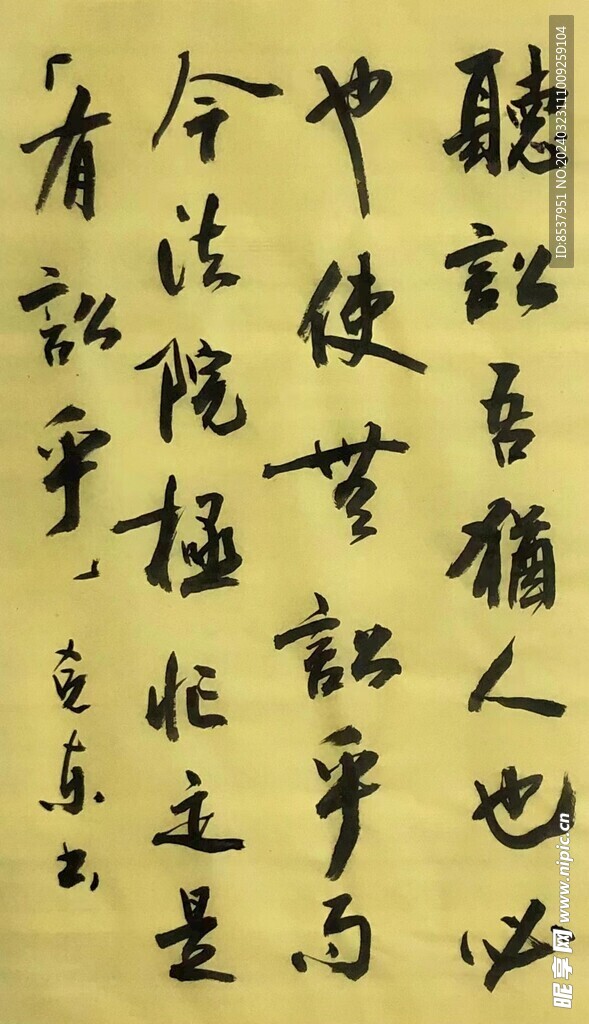 聽訟吾猶人也必
也使無訟乎而
今法院極忙定是
「有訟乎」
克東書
ID:8537951 NO:20240323111009259104
昵享网 www.nipic.cn